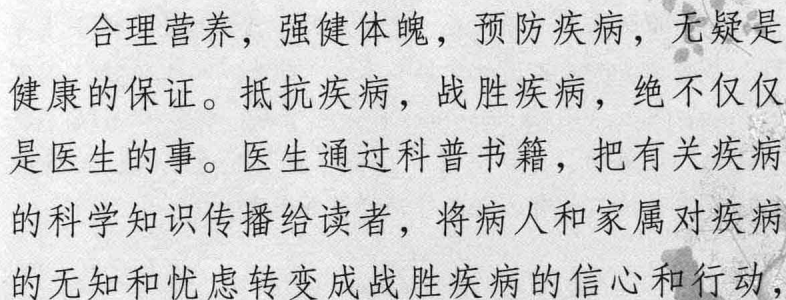 合理营养，强健体魄，预防疾病，无疑是
健康的保证。抵抗疾病，战胜疾病，绝不仅仅
是医生的事。医生通过科普书籍，把有关疾病
的科学知识传播给读者，将病人和家属对疾病
的无知和忧虑转变成战胜疾病的信心和行动，